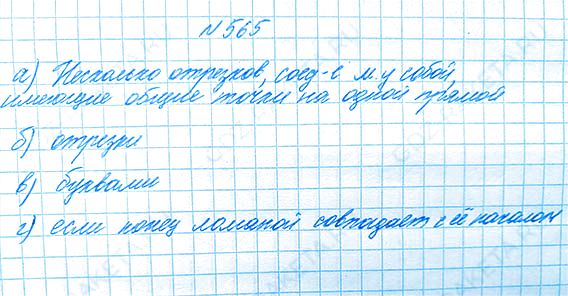 N 565
а) Несколько отрезков, соед-е м.у собой,
имеющие общие точки на одной прямой
б) отрезки
в) буквами
г) если конец ломаной совпадает с её началом